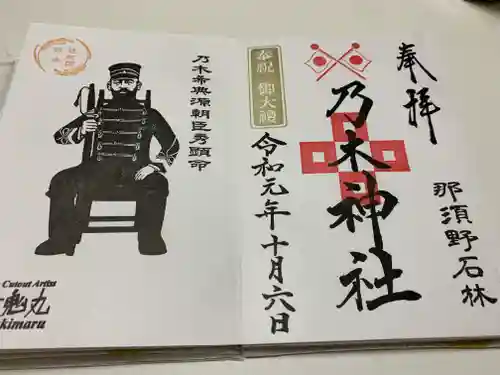 奉拝
那須野石林
乃木神社
奉祝 御大禮
令和元年十月六日
乃木希典源朝臣秀顕命
Cutout Artist
魁丸
kimaru